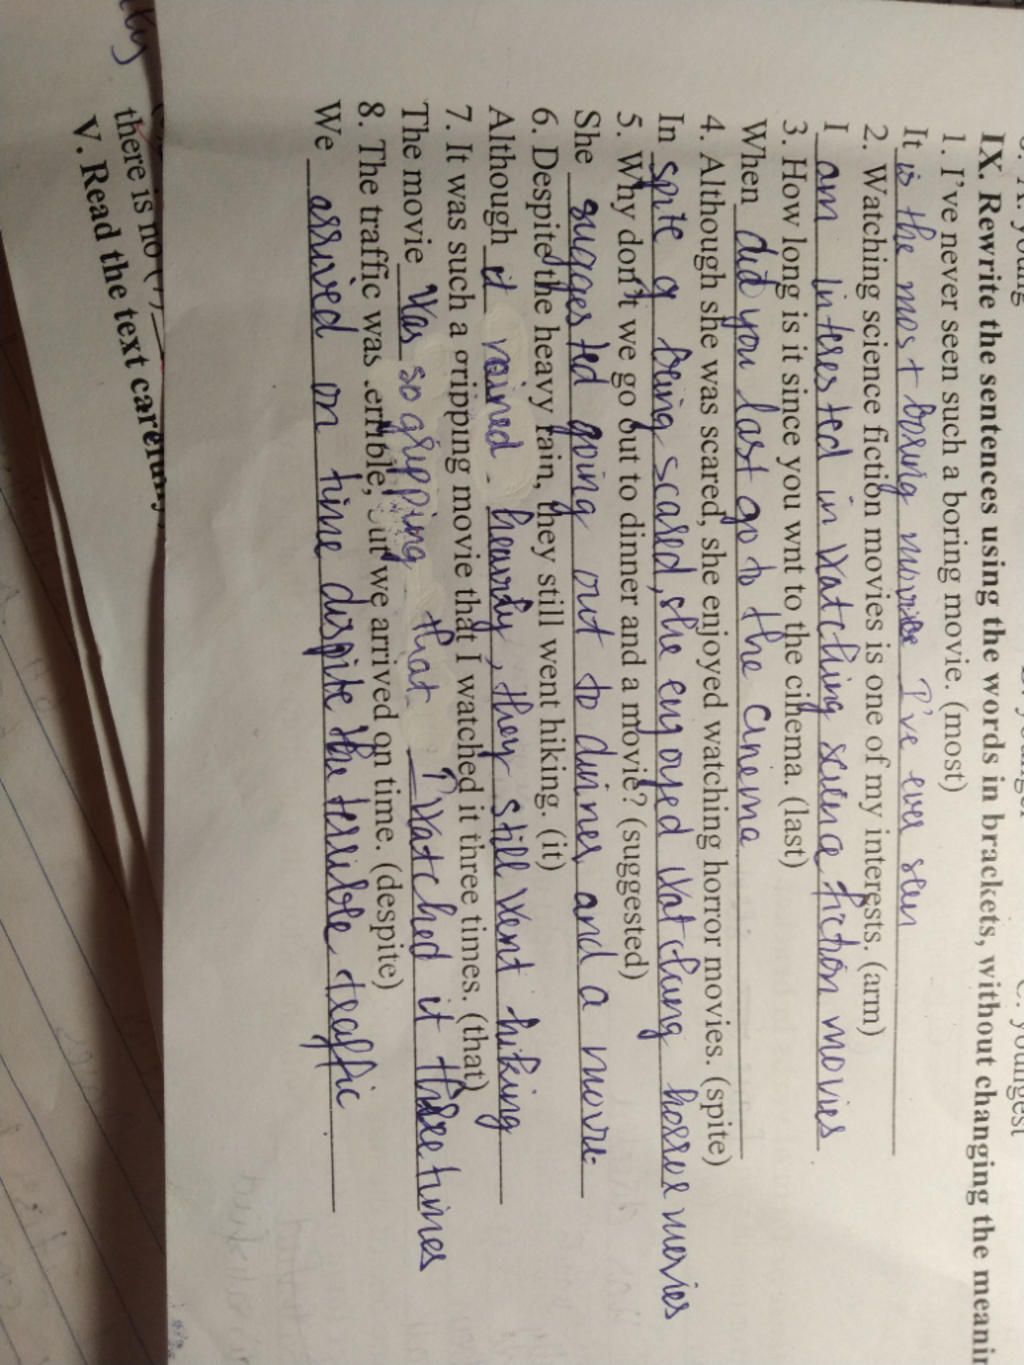 young
C. youngest
IX. Rewrite the sentences using the words in brackets, without changing the meanin
1. I've never seen such a boring movie. (most)
It is the most boring movie I've ever seen
2. Watching science fiction movies is one of my interests. (arm)
I am interested in watching science fiction movies
3. How long is it since you wnt to the cinema. (last)
When did you last go to the cinema
4. Although she was scared, she enjoyed watching horror movies. (spite)
In spite of being scared, she enjoyed watching horror movies
5. Why don't we go out to dinner and a movie? (suggested)
She suggested going out to dinner and a movie.
6. Despite the heavy rain, they still went hiking. (it)
Although it rained heavily, they still went hiking
7. It was such a gripping movie that I watched it three times. (that)
The movie was so gripping that I watched it three times
8. The traffic was terrible, but we arrived on time. (despite)
We arrived on time despite the terrible traffic
there is no
V. Read the text carefully